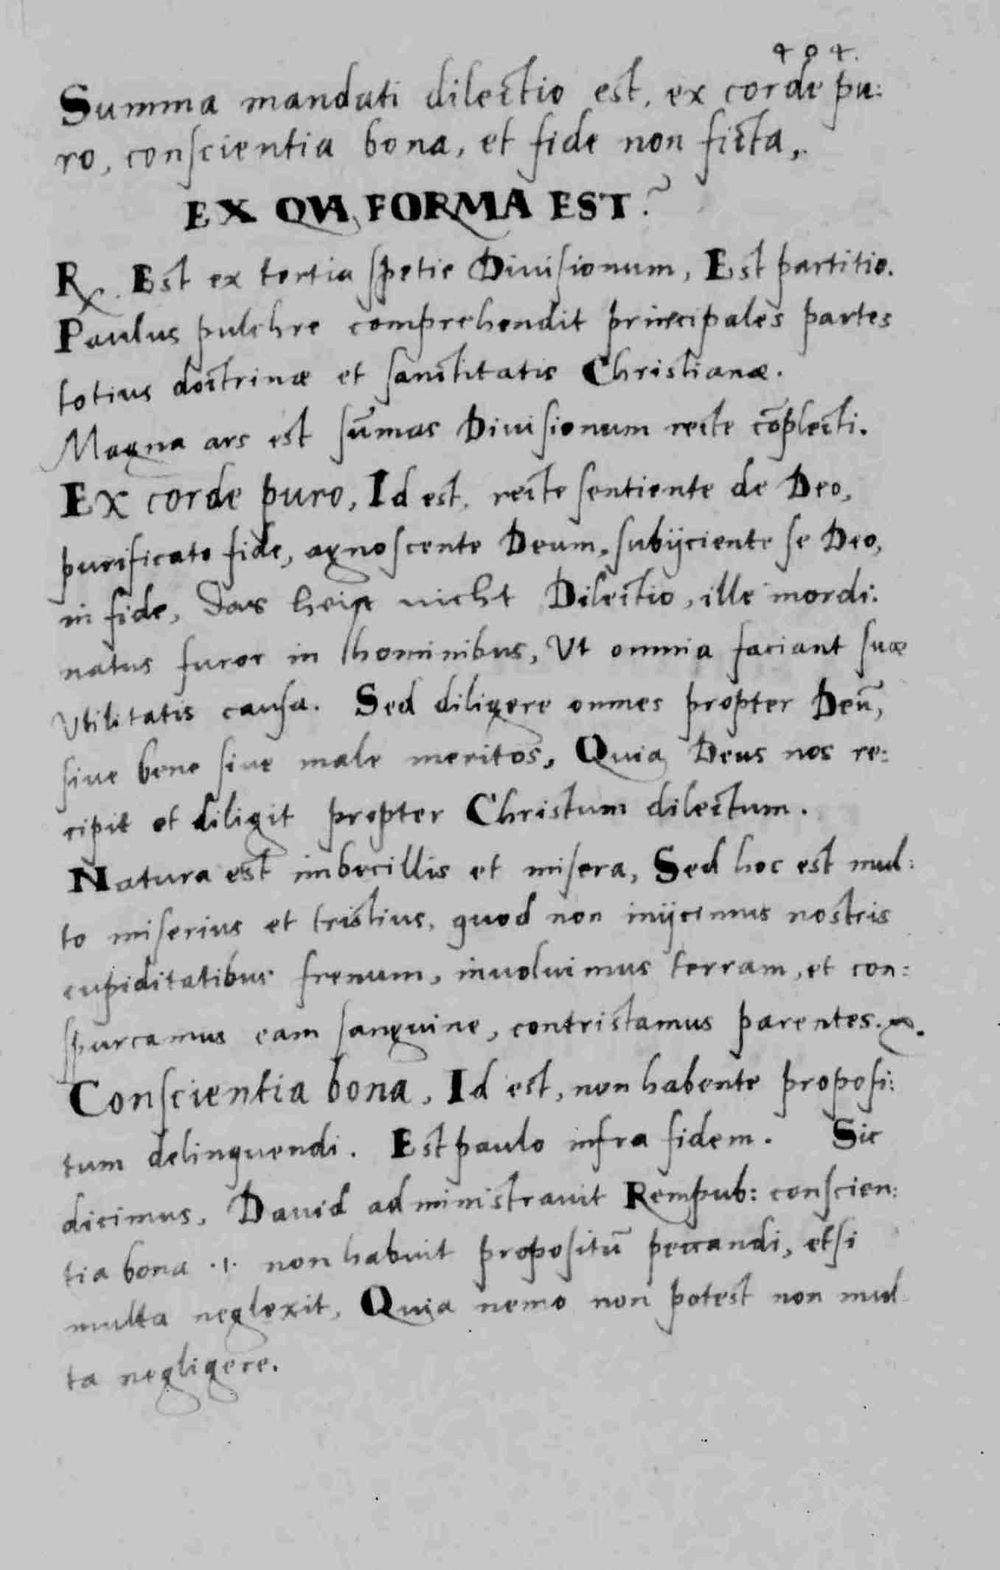 404.
Summa mandati dilectio est, ex corde pu:
ro, conscientia bona, et fide non ficta,.
EX QVA FORMA EST?
Rx. Est ex tertia spetie Diuisionum, Est partitio.
Paulus pulchre comprehendit principales partes
totius doctrinæ et sanctitatis Christianæ.
Magna ars est sum̄as Diuisionum recte cōplecti.
Ex corde puro, Id est, recte sentiente de Deo,
purificato fide, agnoscente Deum, subijciente se Deo,
in fide, Das heist nicht Dilectio, ille inordi:
natus furor in hominibus, Vt omnia faciant suæ
Vtilitatis causa. Sed diligere omnes propter Deū,
siue bene siue male meritos, Quia Deus nos re:
cipit et diligit propter Christum dilectum.
Natura est imbecillis et misera, Sed hoc est mul:
to miserius et tristius, quod non inijcimus nostris
cupiditatibus frenum, inuoluimus terram, et con:
spurcamus eam sanguine, contristamus parentes.
Conscientia bona, Id est, non habente proposi:
tum delinquendi. Est paulo infra fidem. Sic
dicimus, Dauid administrauit Rempub: conscien:
tia bona .i. non habuit propositū peccandi, etsi
multa neglexit, Quia nemo non potest non mul
ta negligere.